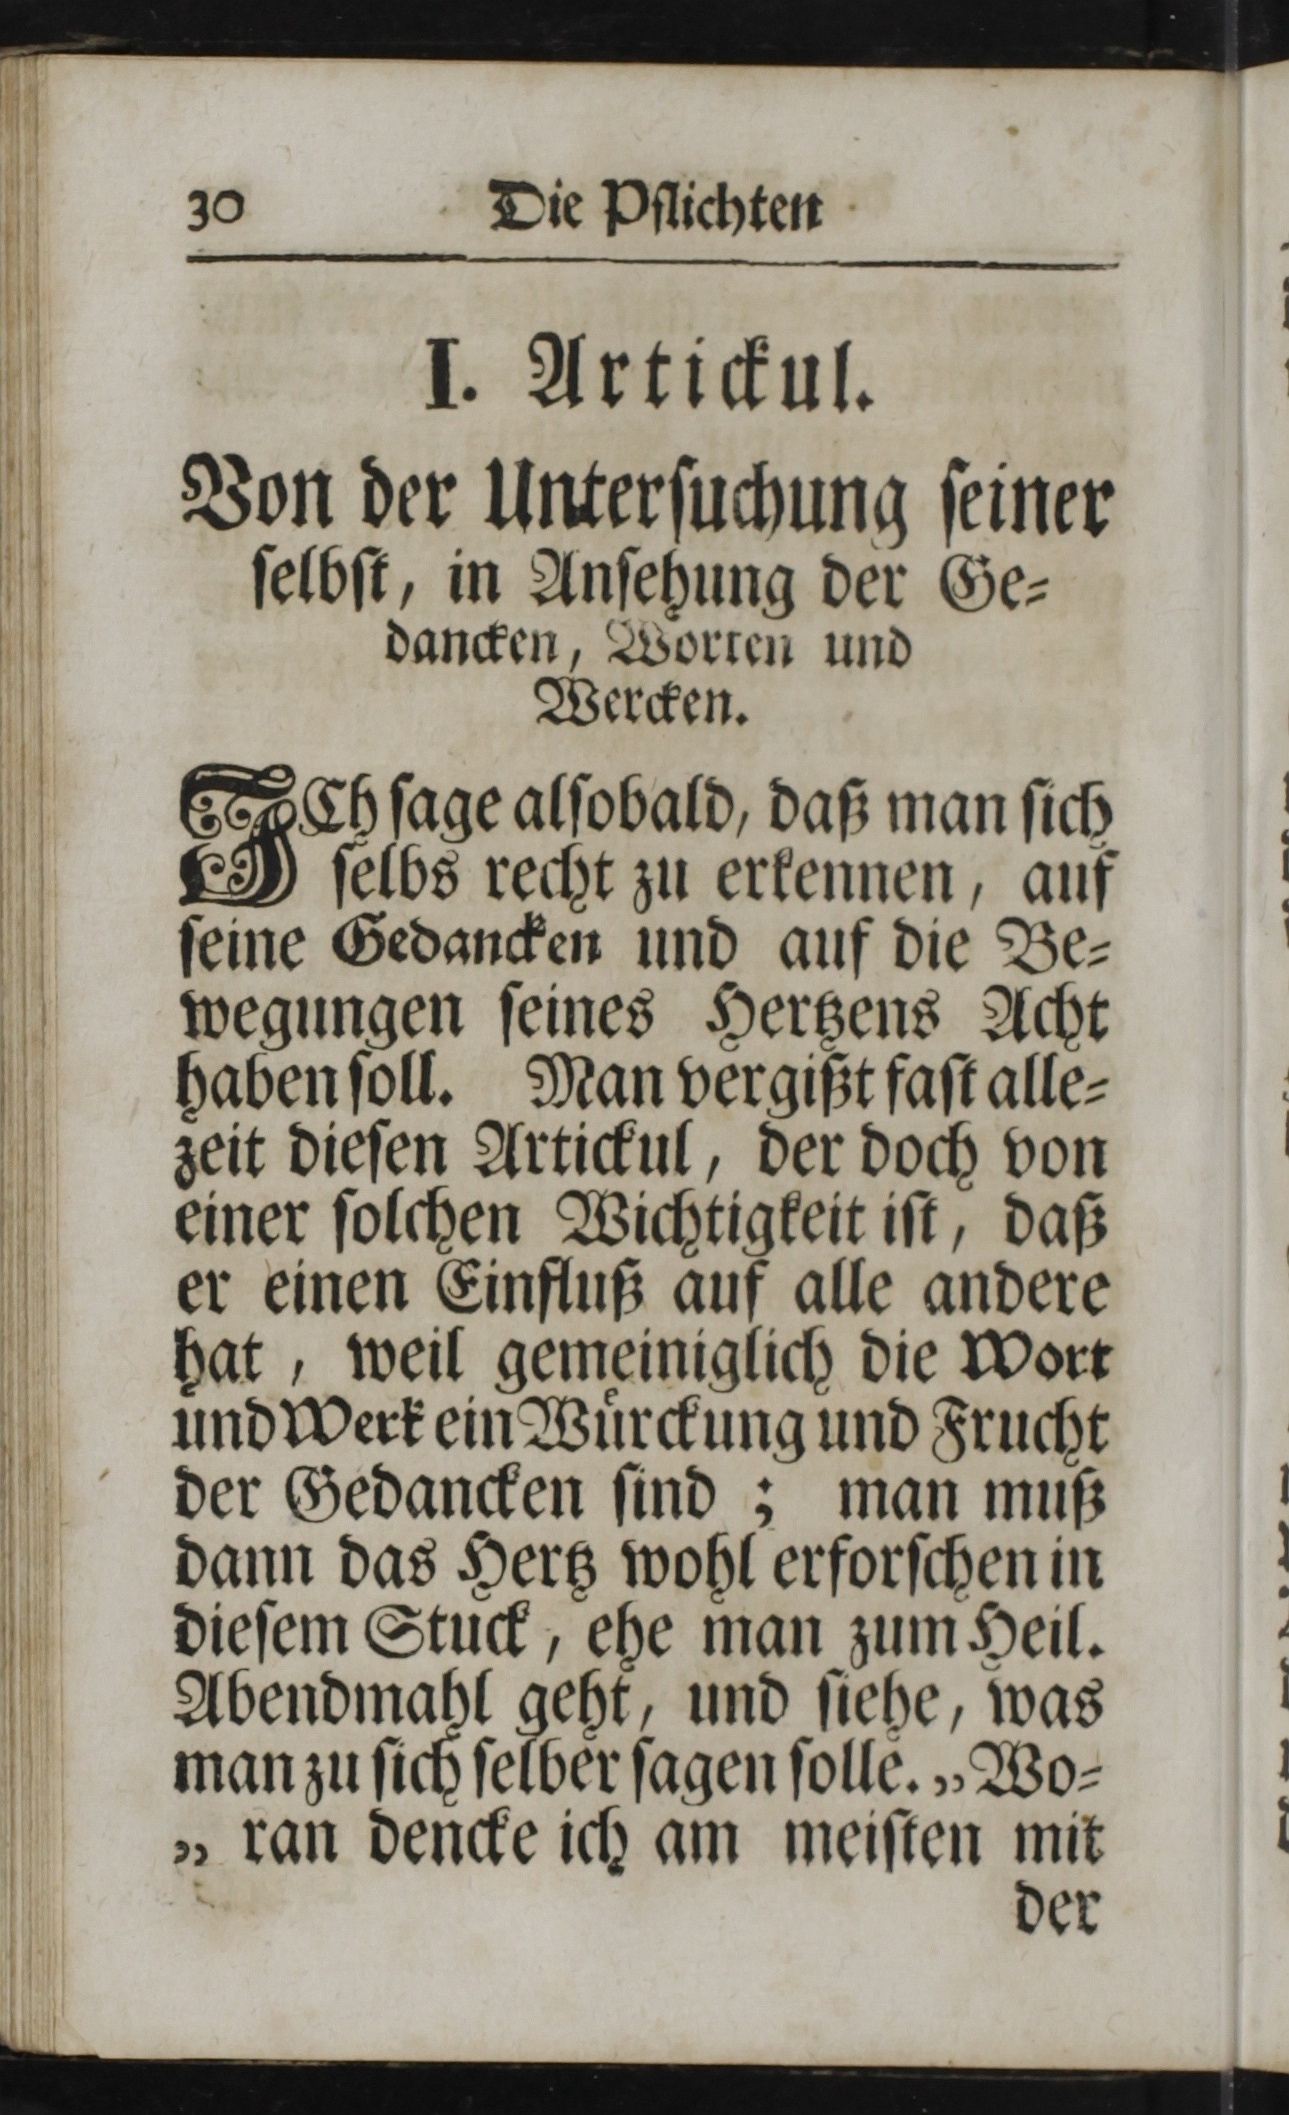 30 Die Pflichten
I. Artickul.
Von der Untersuchung seiner
selbst, in Ansehung der Ge-
dancken, Worten und
Wercken.
ICh sage alsobald, daß man sich
selbs recht zu erkennen, auf
seine Gedancken und auf die Be-
wegungen seines Hertzens Acht
haben soll. Man vergißt fast alle-
zeit diesen Artickul, der doch von
einer solchen Wichtigkeit ist, daß
er einen Einfluß auf alle andere
hat, weil gemeiniglich die Wort
und Werk ein Würckung und Frucht
der Gedancken sind; man muß
dann das Hertz wohl erforschen in
diesem Stuck, ehe man zum Heil.
Abendmahl geht, und siehe, was
man zu sich selber sagen solle. „Wo-
„ ran dencke ich am meisten mit
der